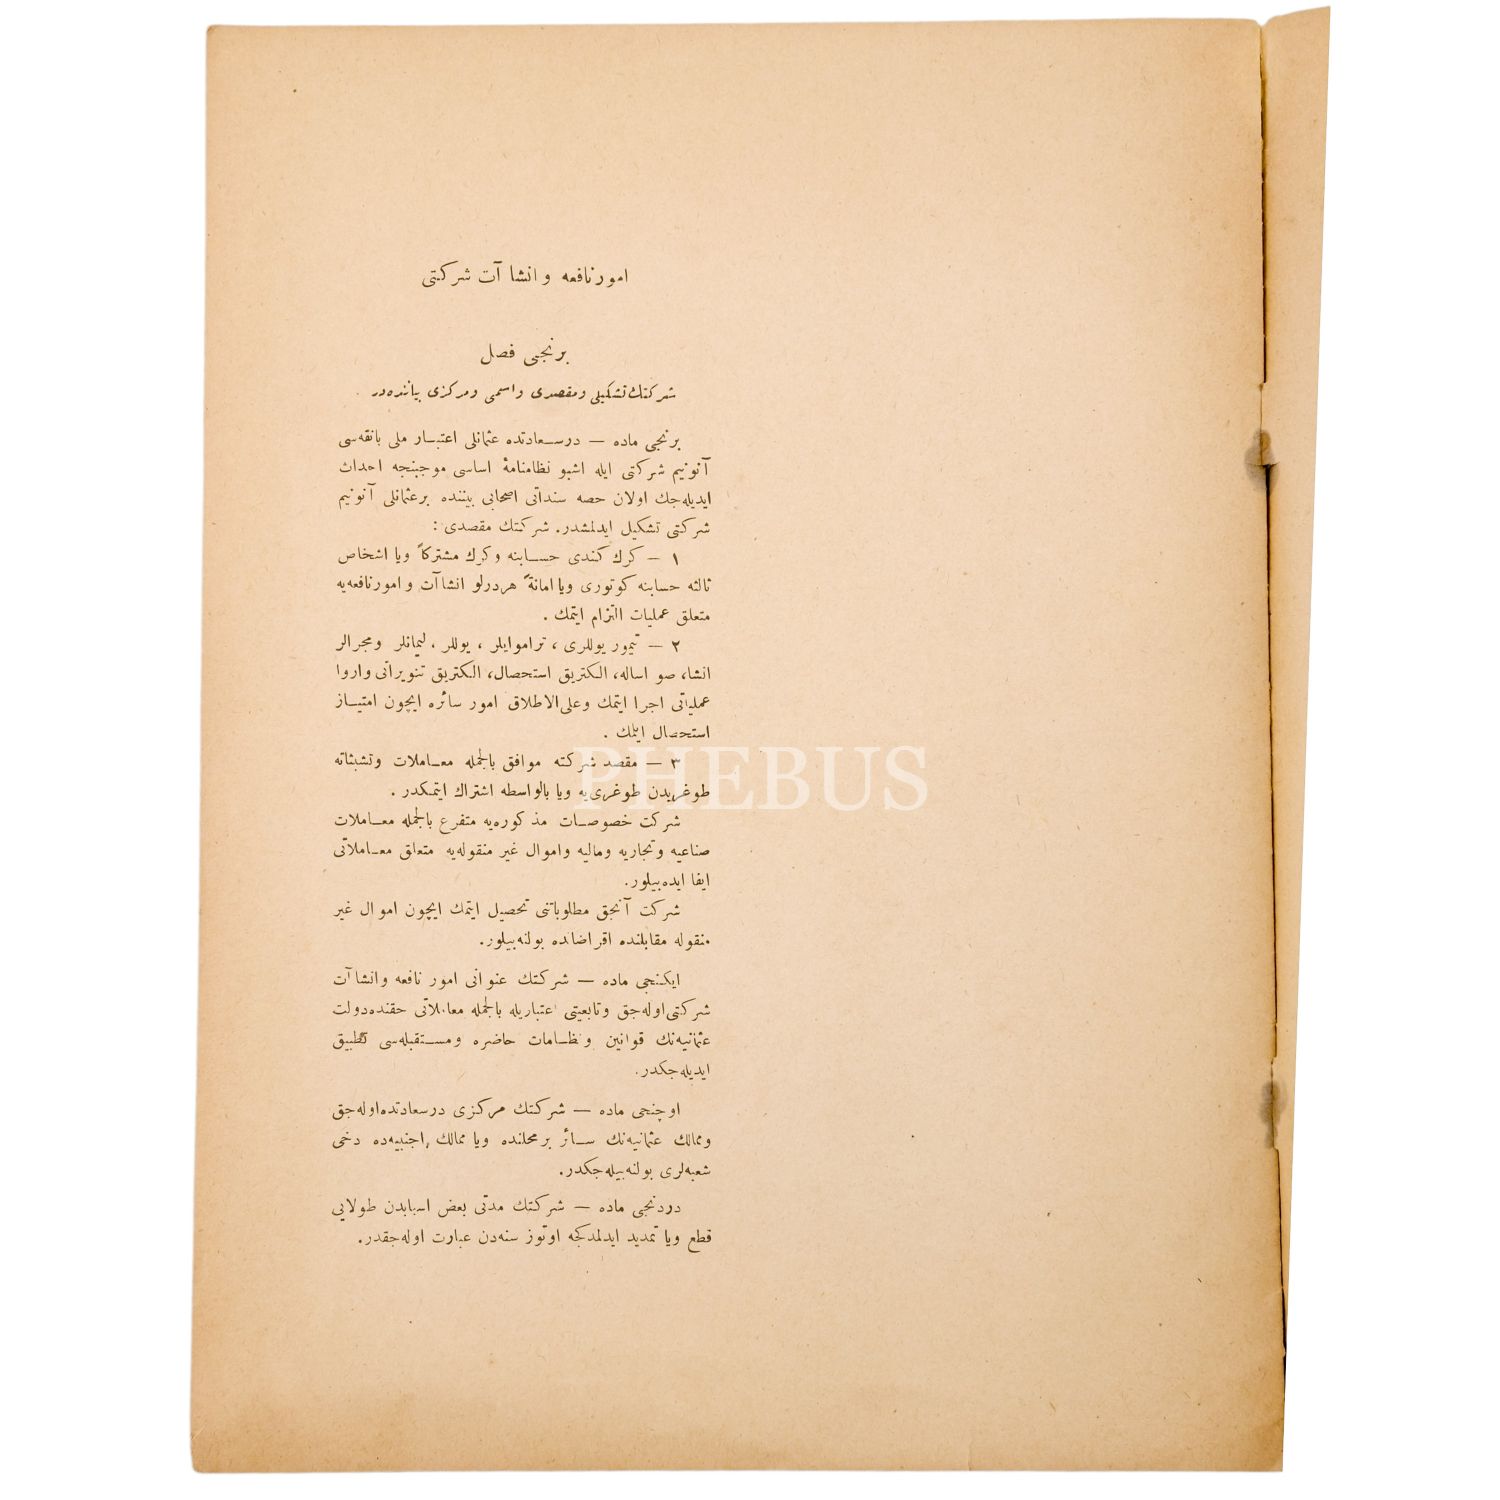 امور نافعه و انشاآت شركتی
برنجی فصل
شركتك تشكیلی و مقصدی و اسمی و مركزی بیاننده‌در
برنجی ماده — درسعادتده عثمانلی اعتبار ملی بانقه‌سی
آنونیم شركتی ایله اشبو نظامنامهٔ اساسی موجبنجه احداث
ایدیله‌جك اولان حصه سنداتی اصحابی بیننده بر عثمانلی آنونیم
شركتی تشكیل ایدلمشدر. شركتك مقصدی :
١ — كرك كندی حسابنه وكرك مشتركاً ویا اشخاص
ثالثه حسابنه كوتوری ویا امانةً هردرلو انشاآت و امورنافعه‌یه
متعلق عملیات التزام ایتمك .
٢ — تیمور یوللری ، تراموایلر ، یوللر ، لیمانلر ومجرالر
انشا، صو اساله، الكتریق استحصال، الكتریق تنویراتی واروا
عملیاتی اجرا ایتمك وعلی‌الاطلاق امور سائره ایچون امتیاز
استحصال ایلمك .
٣ — مقصد شركته موافق بالجمله معاملات وتشبثاته
طوغریدن طوغری‌یه ویا بالواسطه اشتراك ایتمكدر .
PHEBUS
شركت خصوصات مذكوره‌یه متفرع بالجمله معاملات
صناعیه وتجاریه ومالیه واموال غیر منقوله‌یه متعلق معاملاتی
ایفا ایده‌بیلور.
شركت آنجق مطلوباتنی تحصیل ایتمك ایچون اموال غیر
منقوله مقابلنده اقراضاتده بولنه‌بیلور.
ایكنجی ماده — شركتك عنوانی امور نافعه وانشاآت
شركتی اوله‌جق وتابعیتی اعتباریله بالجمله معاملاتی حقنده دولت
عثمانیه‌نك قوانین ونظامات حاضره ومستقبله‌سی تطبیق
ایدیله‌جكدر.
اوچنجی ماده — شركتك مركزی درسعادتده اوله‌جق
وممالك عثمانیه‌نك سائر بر محلنده ویا ممالك اجنبیه‌ده دخی
شعبه‌لری بولنه‌بیله‌جكدر.
دردنجی ماده — شركتك مدتی بعض اسبابدن طولایی
قطع ویا تمدید ایدلمدكجه اوتوز سنه‌دن عبارت اوله‌جقدر.